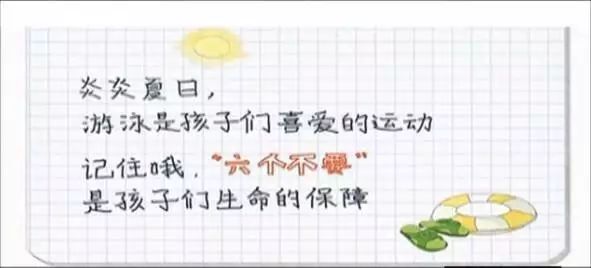 炎炎夏日，
游泳是孩子们喜爱的运动
记住哦，“六个不要”
是孩子们生命的保障